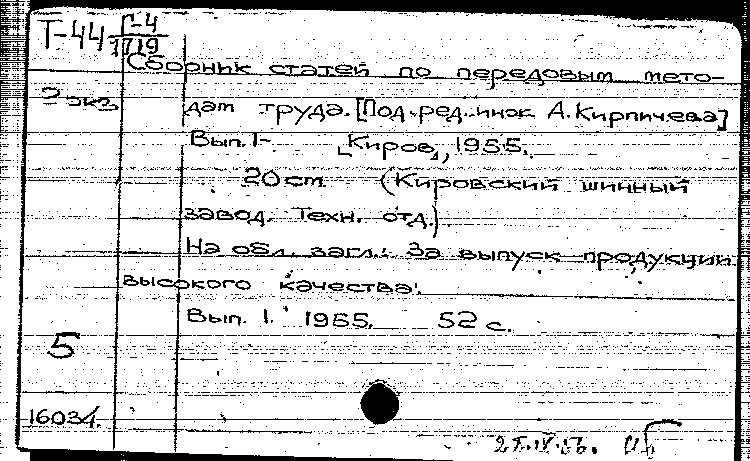 Т-44 Г-4
1719
Сборник статей по передовым мето-
2 экз
дам труда. [Под ред. инж А. Кирпичева]
Вып. 1-. [Киров], 1955.
20 см. (Кировский шинный
завод. Техн. отд.).
На обл. загл.: За выпуск продукции
высокого качества.
Вып. 1. 1955. 52 с.
5
16034.